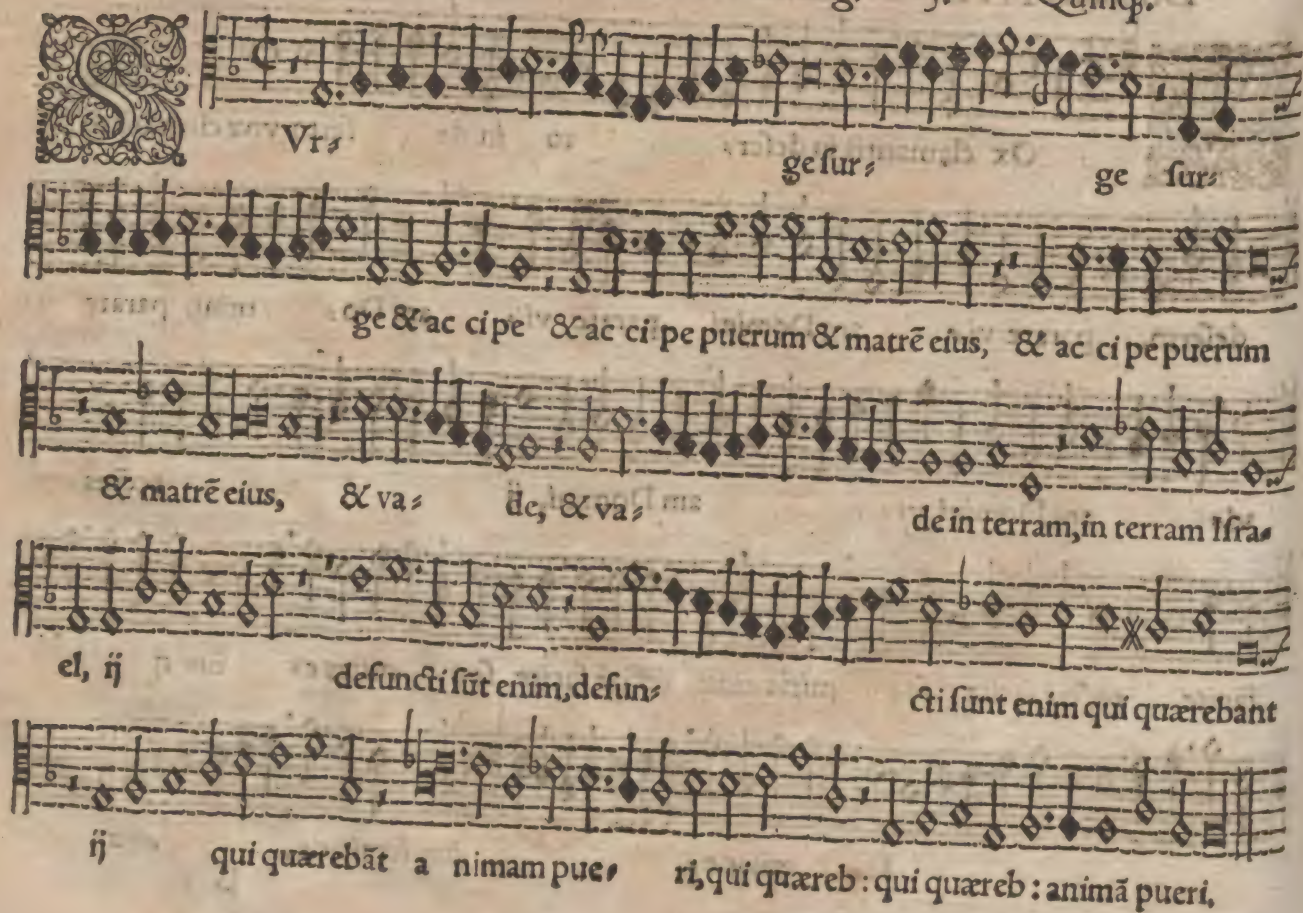 Quinq;.
SVrge surge sur-
ge & ac cipe & ac ci pe puerum & matrē eius, & ac ci pe puerum
& matrē eius, & va- de, & va- de in terram, in terram Isra-
el, ij defuncti sūt enim, defun- cti sunt enim qui quærebant
ij qui quærebāt a nimam pue- ri, qui quæreb: qui quæreb: animā pueri.